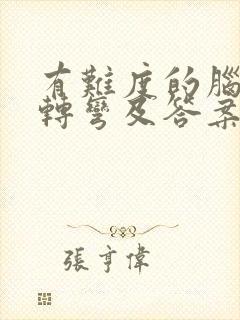 有難度的腦
轉彎及答案
張亨偉